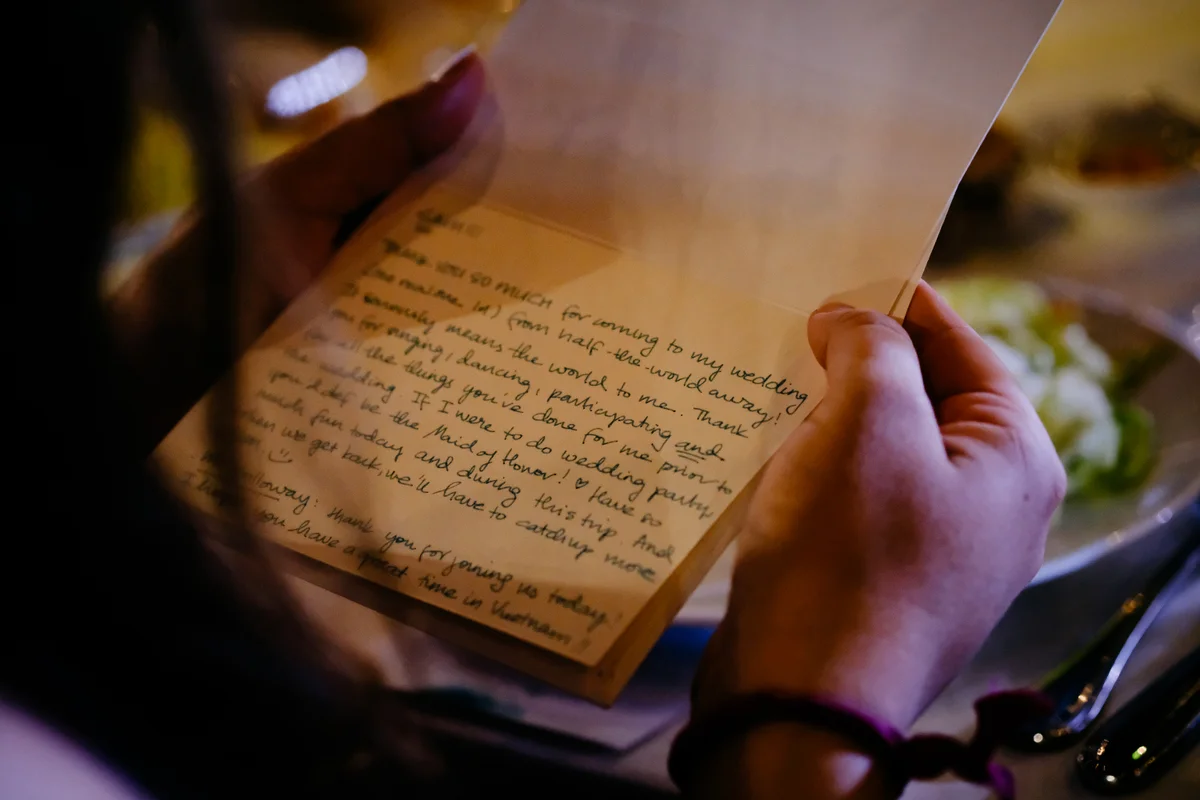 Thank YOU SO MUCH for coming to my wedding
from half-the-world away!
It seriously means the world to me. Thank
you for singing, dancing, participating and
for all the things you've done for me prior to
the wedding. If I were to do wedding party,
you'd def be the Maid of Honor! ♡ Have so
much fun today and during this trip. And
when we get back, we'll have to catch up more
:)
lloway: Thank you for joining us today!
you have a great time in Vietnam!!